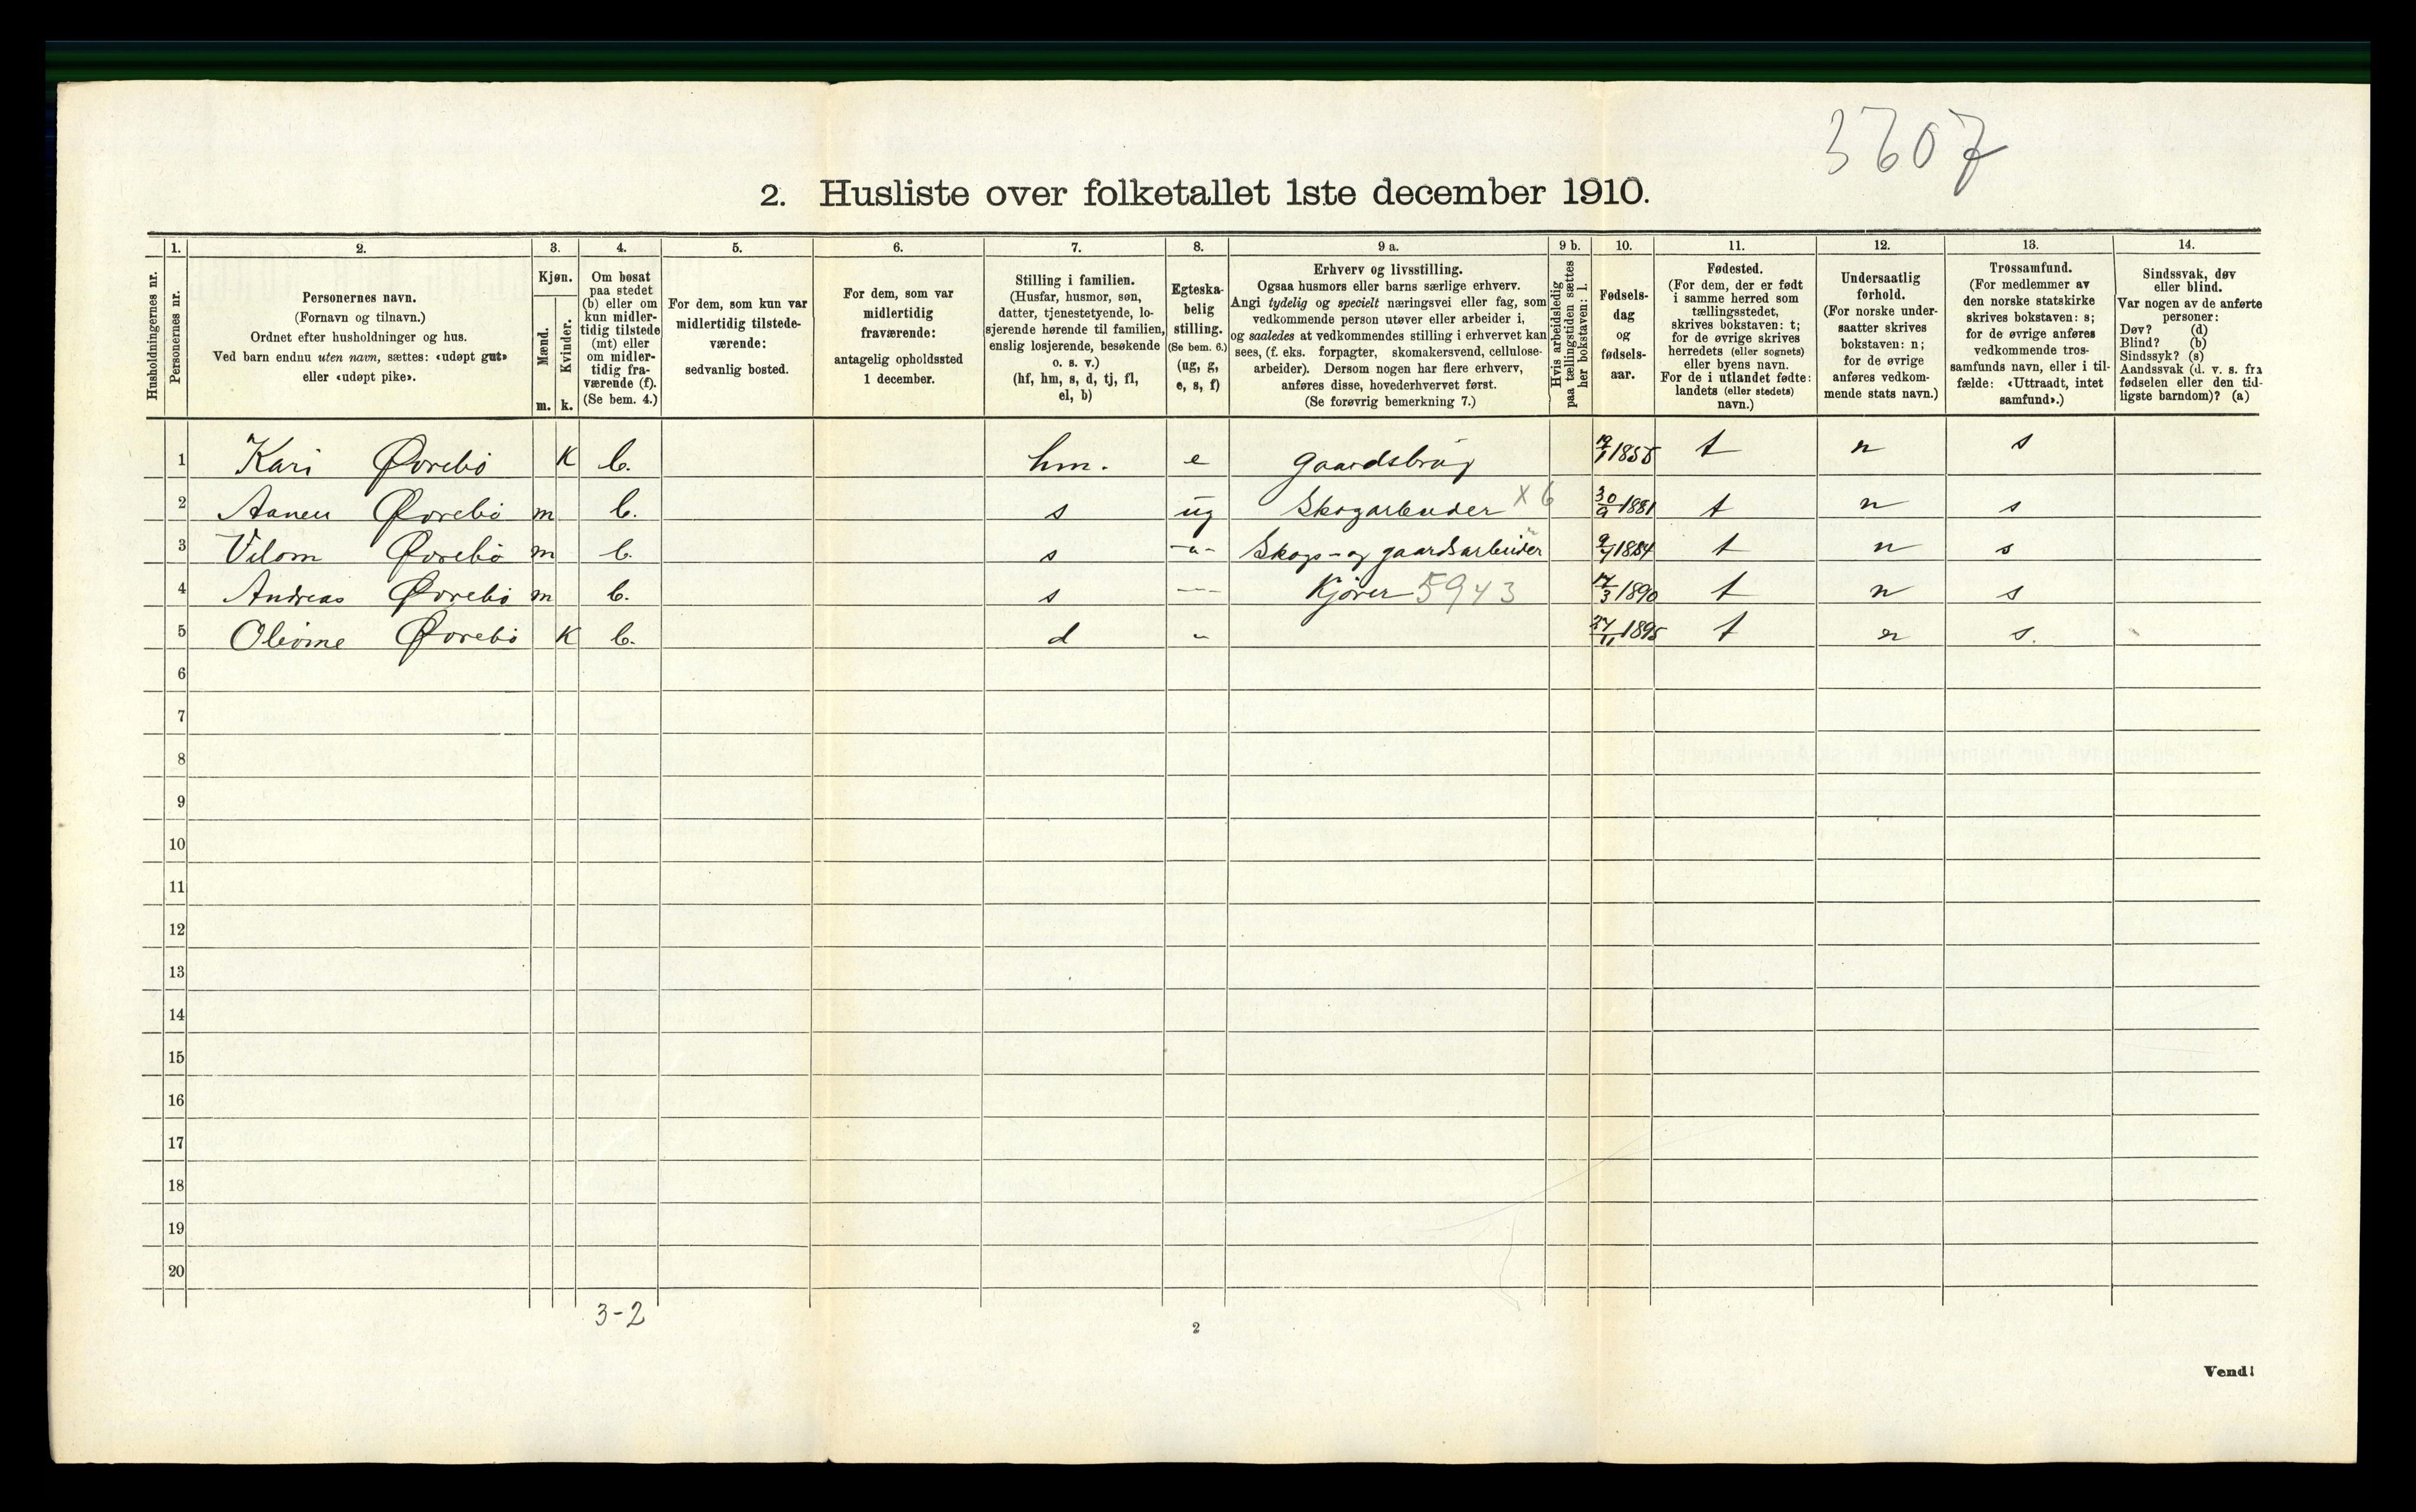 3607
2. Husliste over folketallet 1ste december 1910.
Husholdningernes nr.
1. Personernes nr.
2. Personernes navn. (Fornavn og tilnavn.) Ordnet efter husholdninger og hus. Ved barn endnu uten navn, sættes: «udøpt gut» eller «udøpt pike».
3. Kjøn. Mænd. m. Kvinder. k.
4. Om bosat paa stedet (b) eller om kun midlertidig tilstede (mt) eller om midlertidig fraværende (f). (Se bem. 4.)
5. For dem, som kun var midlertidig tilstedeværende: sedvanlig bosted.
6. For dem, som var midlertidig fraværende: antagelig opholdssted 1 december.
7. Stilling i familien. (Husfar, husmor, søn, datter, tjenestetyende, losjerende hørende til familien, enslig losjerende, besøkende o. s. v.) (hf, hm, s, d, tj, fl, el, b)
8. Egteskabelig stilling. (Se bem. 6.) (ug, g, e, s, f)
9 a. Erhverv og livsstilling. Ogsaa husmors eller barns særlige erhverv. Angi tydelig og specielt næringsvei eller fag, som vedkommende person utøver eller arbeider i, og saaledes at vedkommendes stilling i erhvervet kan sees, (f. eks. forpagter, skomakersvend, cellulosearbeider). Dersom nogen har flere erhverv, anføres disse, hovederhvervet først. (Se forøvrig bemerkning 7.)
9 b. Hvis arbeidsledig paa tællingstiden sættes her bokstaven: l.
10. Fødselsdag og fødselsaar.
11. Fødested. (For dem, der er født i samme herred som tællingsstedet, skrives bokstaven: t; for de øvrige skrives herredets (eller sognets) eller byens navn. For de i utlandet fødte: landets (eller stedets) navn.)
12. Undersaatlig forhold. (For norske undersaatter skrives bokstaven: n; for de øvrige anføres vedkommende stats navn.)
13. Trossamfund. (For medlemmer av den norske statskirke skrives bokstaven: s; for de øvrige anføres vedkommende trossamfunds navn, eller i tilfælde: «Uttraadt, intet samfund».)
14. Sindssvak, døv eller blind. Var nogen av de anførte personer: Døv? (d) Blind? (b) Sindssyk? (s) Aandssvak (d. v. s. fra fødselen eller den tidligste barndom)? (a)
1 Kari Øvrebö K b. hm. e gaardsbrug t n s
2 Aanen Øvrebö m b. s ug Skogarbeider x 6 30/9 1881 t n s
3 Vilom Øvrebö m b. s -"- Skogs- og gaardsarbeider 1884 t n s
4 Andreas Øvrebö m b. s -- Kjörer 5943 17/3 1890 t n s
5 Olevine Øvrebö K b. d " 27/11 1895 t n s.
6
7
8
9
10
11
12
13
14
15
16
17
18
19
20
3-2
2
Vend!